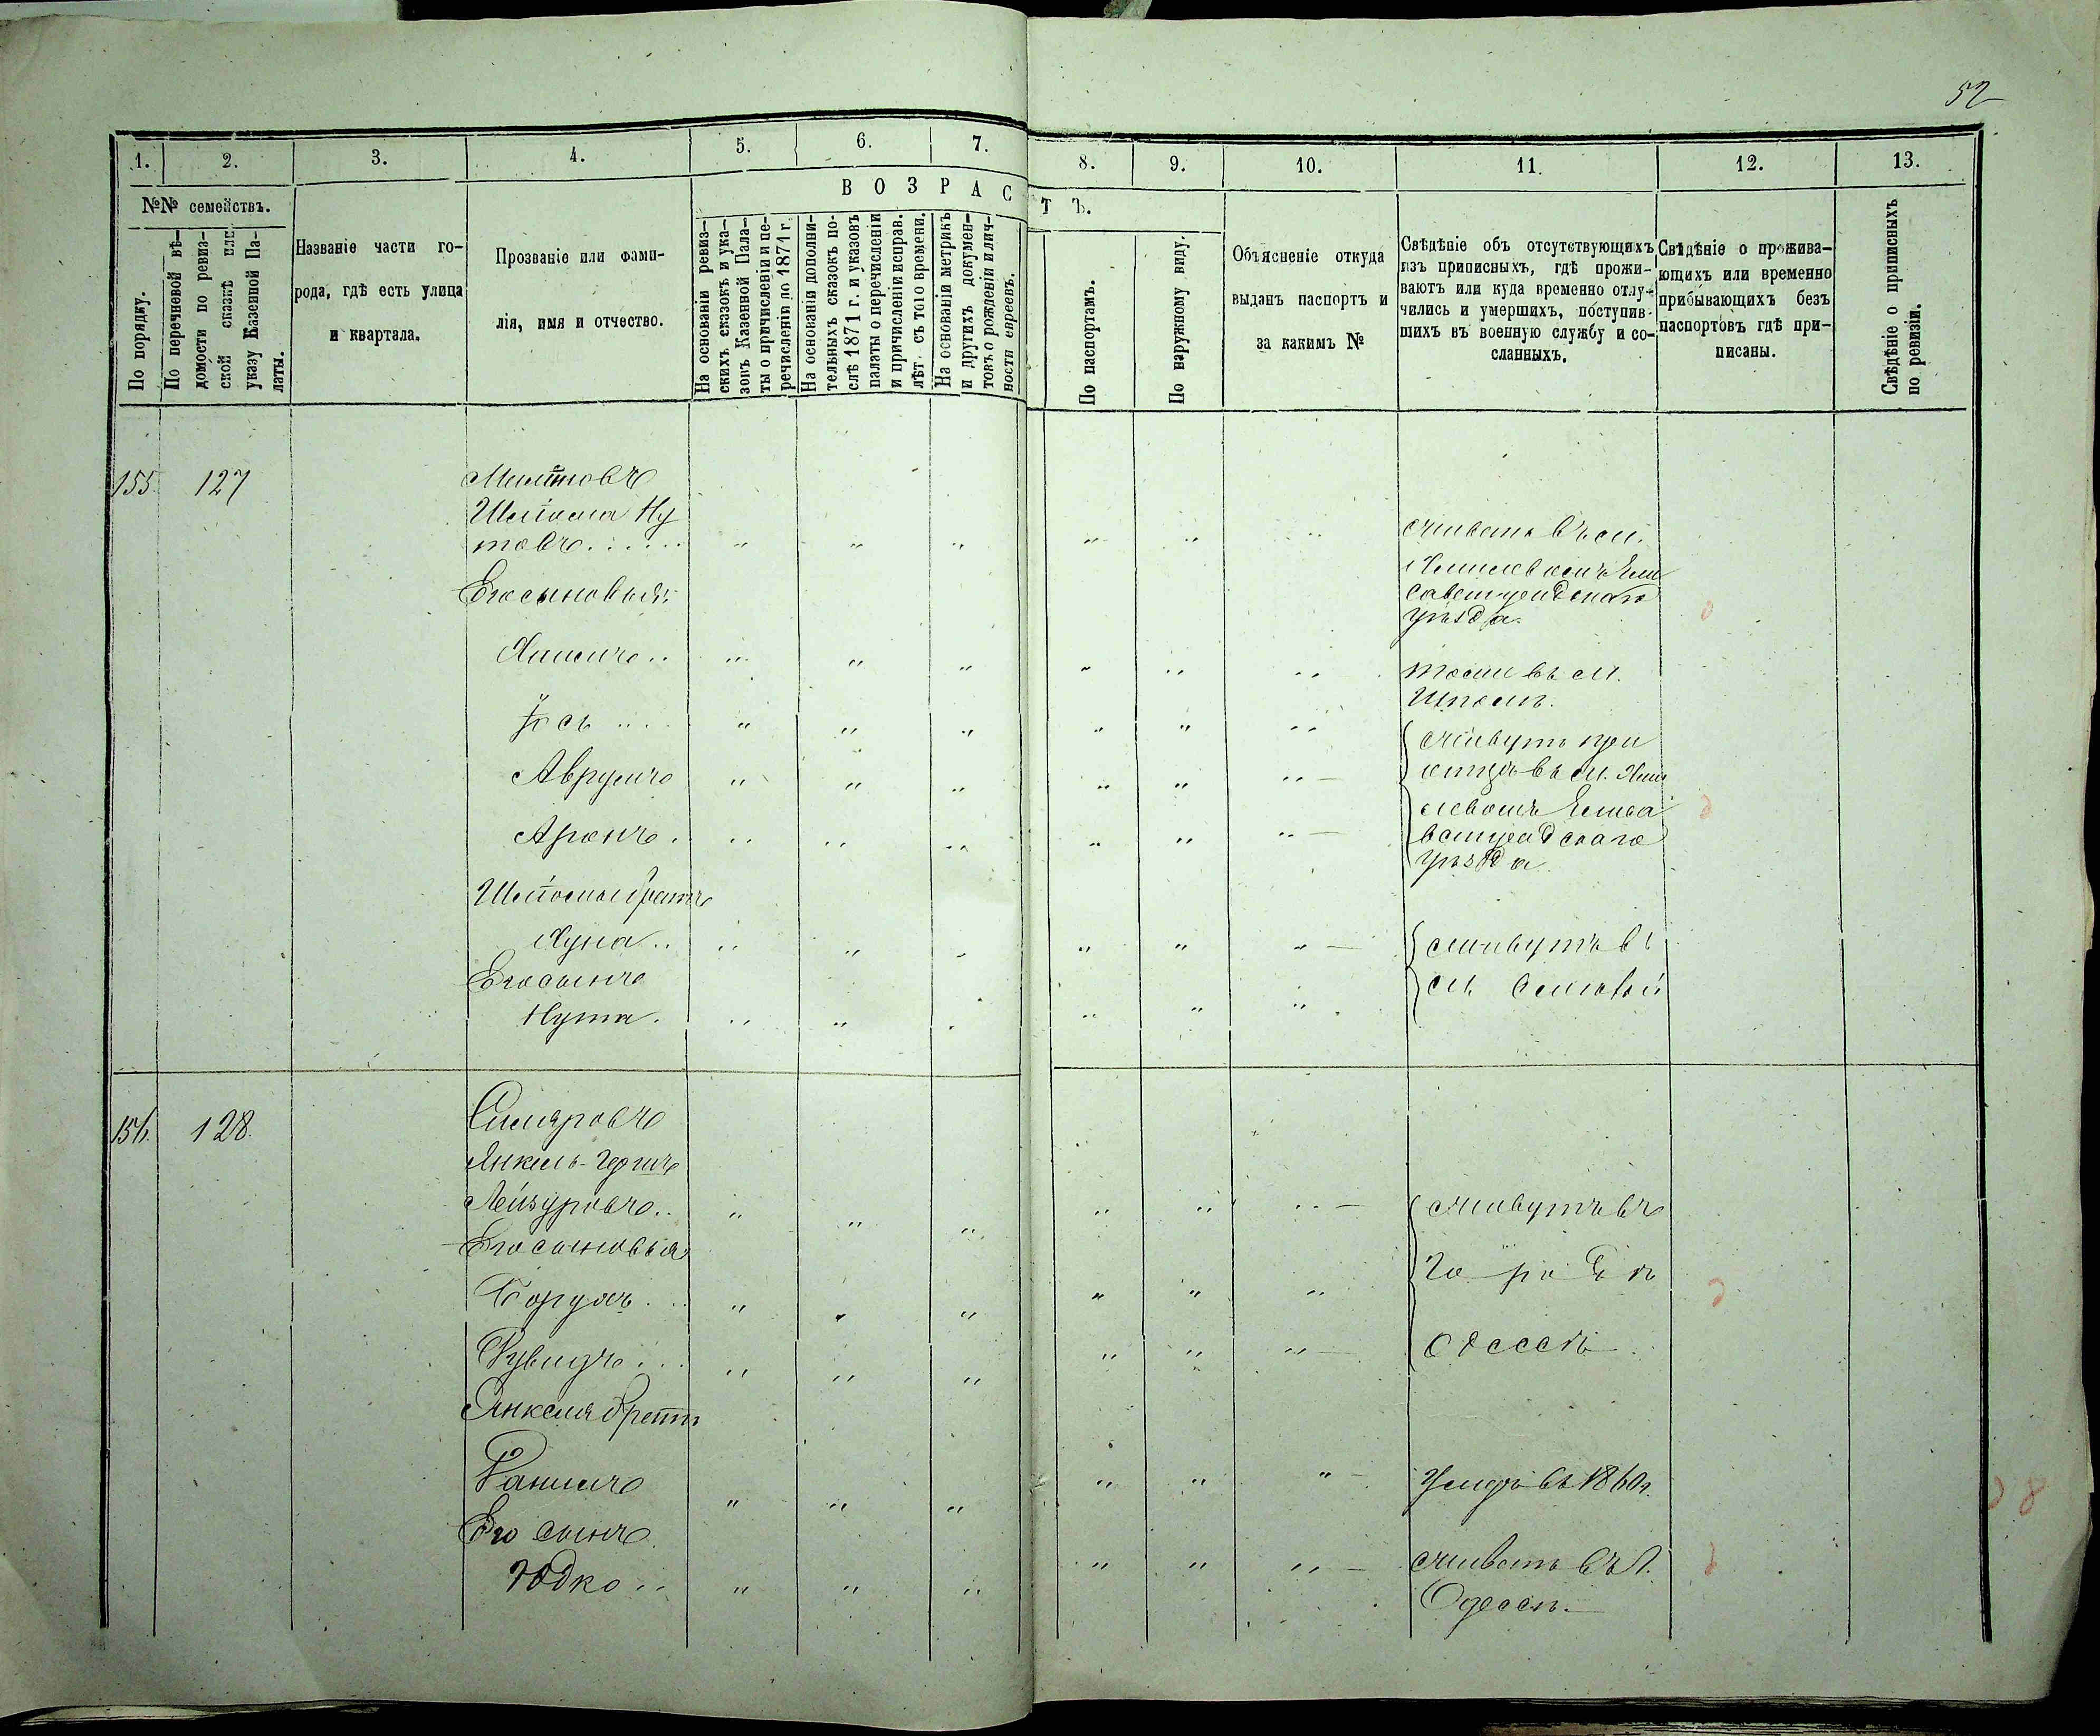 52
1. 2. 3. 4. 5. 6. 7. 8. 9. 10. 11. 12. 13.
№№ семействъ.
В О З Р А С Т Ъ.
По порядку.
По перечневой вѣ-
домости по ревиз-
ской сказкѣ или
указу Казенной Па-
латы.
Названіе части го-
рода, гдѣ есть улица
и квартала.
Прозваніе или фами-
лія, имя и отчество.
На основаніи ревиз-
скихъ сказокъ и ука-
зовъ Казенной Пала-
ты о причисленіи и пе-
речисленіи до 1871 г.
На основаніи дополни-
тельныхъ сказокъ по-
слѣ 1871 г. и указовъ
палаты о перечисленіи
и причисленіи исправ.
лѣт. съ того времени.
На основаніи метрикъ
и другихъ докумен-
товъ о рожденіи и лич-
ности евреевъ.
По паспортамъ.
По наружному виду.
Объясненіе откуда
выданъ паспортъ и
за какимъ №
Свѣдѣніе объ отсутствующихъ
изъ приписныхъ, гдѣ прожи-
ваютъ или куда временно отлу-
чились и умершихъ, поступив-
шихъ въ военную службу и со-
сланныхъ.
Свѣдѣніе о прожива-
ющихъ или временно
прибывающихъ безъ
паспортовъ гдѣ при-
писаны.
Свѣдѣніе о приписныхъ
по ревизіи.
155 127
Шлiома Ну
товъ...... живетъ въ м.
Ели
Его сыновья: саветградскаго
уѣзда.
Хаимъ.. тоже въ м.
Шполѣ.
Iось .... живутъ при
Аврумъ отцѣ въ м.
Елиса
Аронъ . ветградскаго
уѣзда
Шлiомы братъ
Хуна.. живутъ въ
Его сынъ м.
Нута.
156. 128.
Янкель-
Лейзуровъ.. живутъ въ
Его сыновья
городѣ
Борухъ...
Рувинъ... Одессѣ.
Янкеля братъ
Умеръ въ 1860 г.
Его сынъ
Юдко.. живетъ въ г.
Одессѣ.